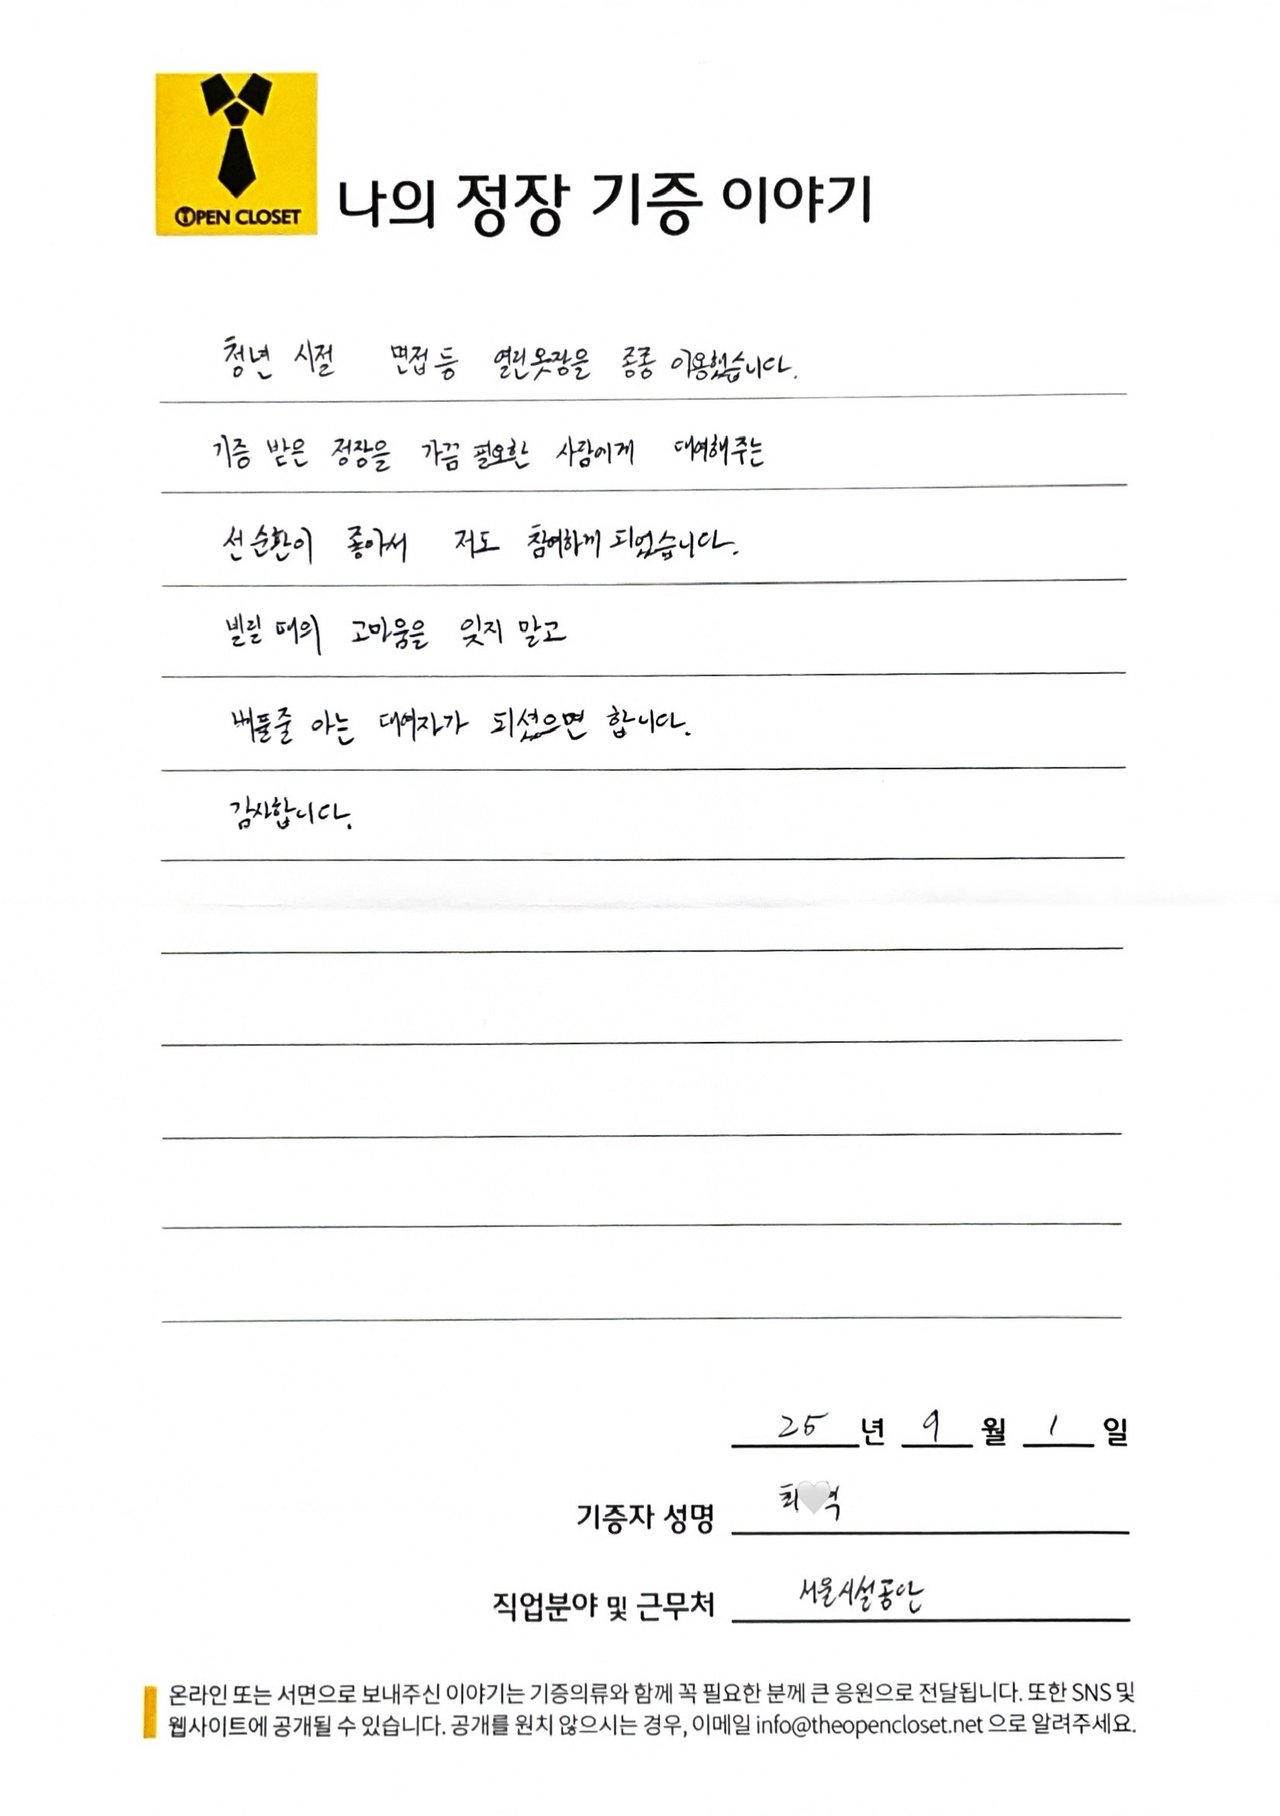 OPEN CLOSET
나의 정장 기증 이야기
청년 시절 면접 등 열린옷장을 종종 이용했습니다.
기증 받은 정장을 가끔 필요한 사람에게 대여해주는
선순환이 좋아서 저도 참여하게 되었습니다.
빌릴 때의 고마움을 잊지 말고
베풀줄 아는 대여자가 되셨으면 합니다.
감사합니다.
25 년 9 월 1 일
기증자 성명 최 역
직업분야 및 근무처 서울시설공단
온라인 또는 서면으로 보내주신 이야기는 기증의류와 함께 꼭 필요한 분께 큰 응원으로 전달됩니다. 또한 SNS 및
웹사이트에 공개될 수 있습니다. 공개를 원치 않으시는 경우, 이메일 info@theopencloset.net 으로 알려주세요.